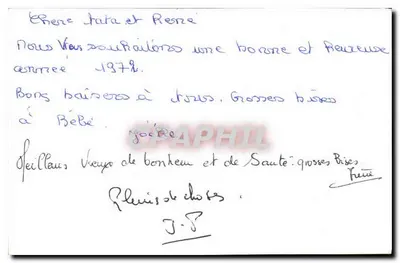 Chere tata et René
Nous Vous souhaitons une bonne et heureuse
année 1972.
Bons baisers à tous. Grosses bises
à Bébé.
Joëlle
Meilleurs Voeux de bonheur et de Santé - grosses bises
Plein de choses.
J.P